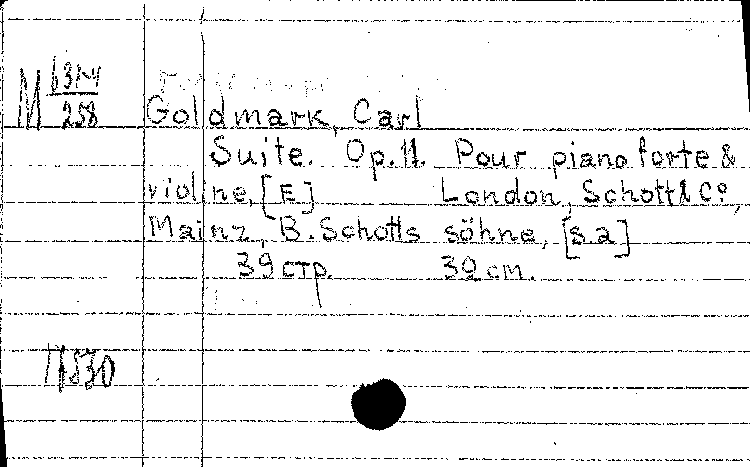 M 631-4
258
Goldmark, Carl
Suite. Op. 11. Pour pianoforte &
violine, [E] London, Schott & Cº,
Mainz, B. Schotts söhne, [s.a]
39 стр. 39 cm.
17530